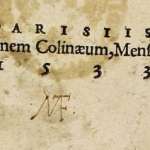 PARISIIS
nem Colinæum, Menſ
1 5 3 3
NF